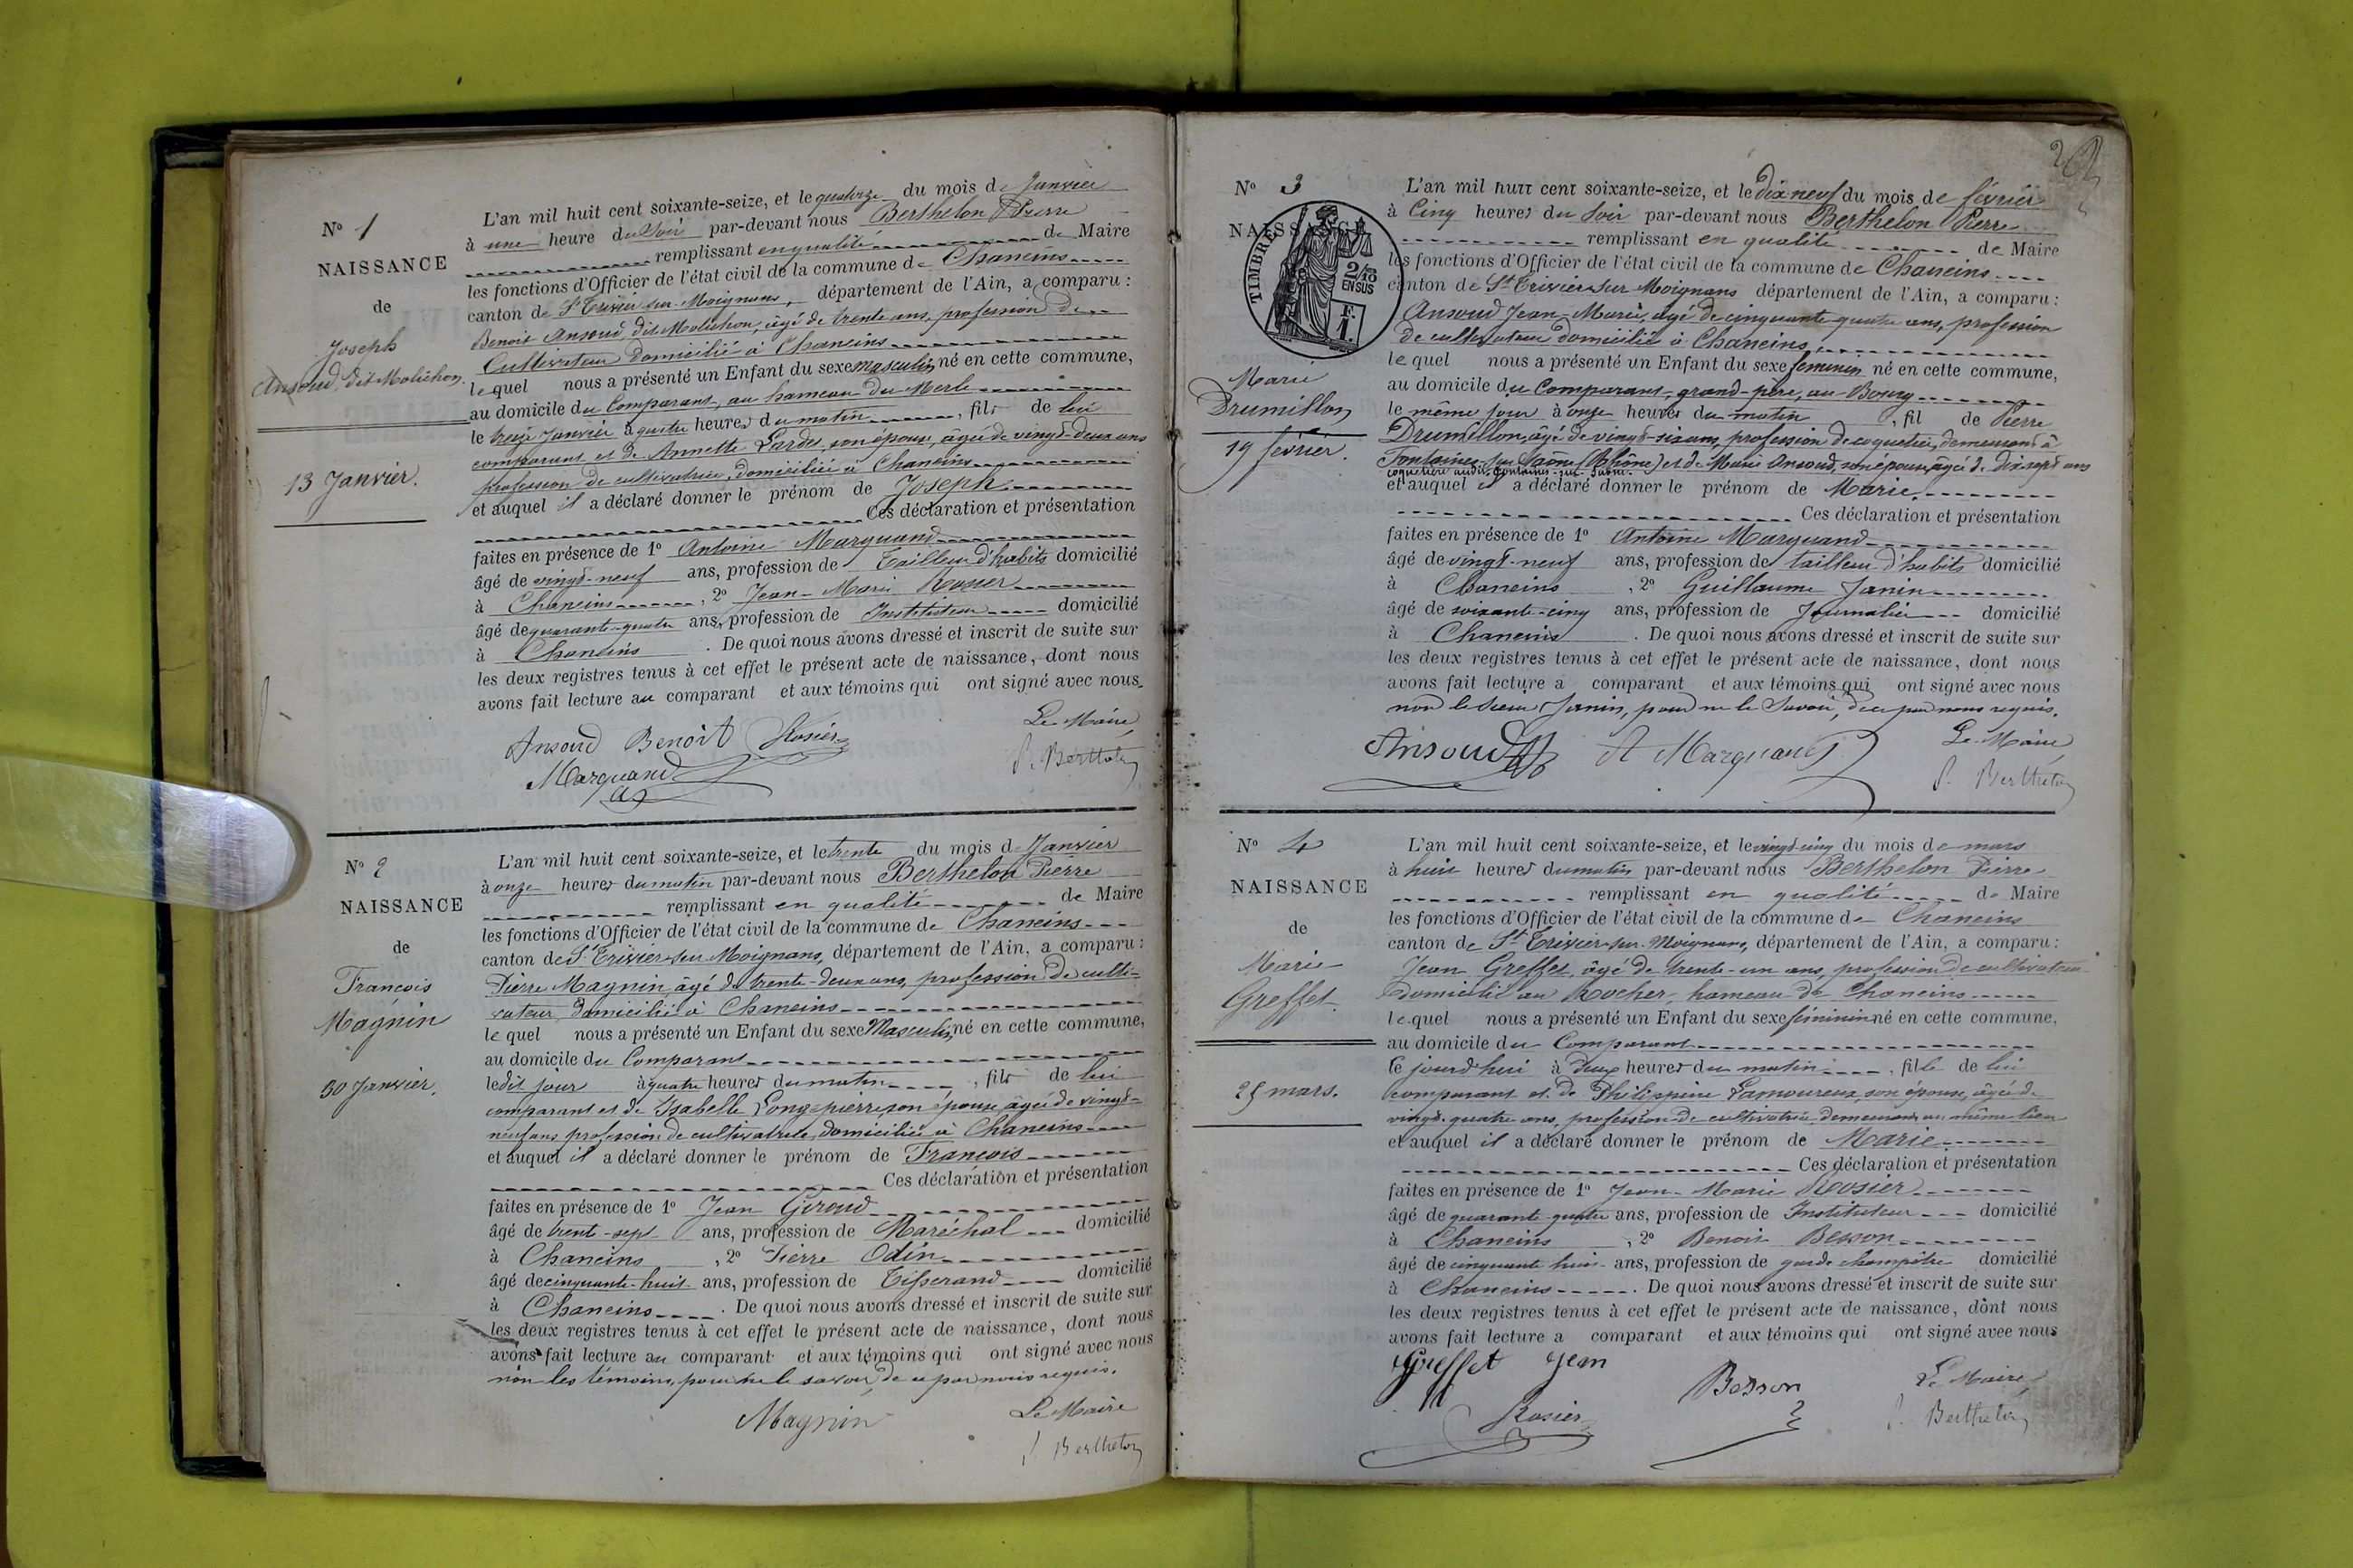 N° 1
NAISSANCE
de
Joseph
Ansoud, dit Molichon.
13 Janvier.
L'an mil huit cent soixante-seize, et le quatorze du mois de Janvier
à une heure du soir par-devant nous Berthelon Pierre
remplissant en qualité de Maire
les fonctions d'Officier de l'état civil de la commune de Chaneins
canton de St Trivier-sur-Moignans, département de l'Ain, a comparu :
Benoit Ansoud, dit Molichon, âgé de trente ans, profession de
Cultivateur domicilié à Chaneins
lequel nous a présenté un Enfant du sexe masculin né en cette commune,
au domicile du Comparant, au hameau du Merle
le treize Janvier à quatre heures du matin, fils de lui
comparant et de Annette Lardet, son épouse, âgée de vingt-deux ans
profession de cultivatrice, domiciliée à Chaneins
et auquel il a déclaré donner le prénom de Joseph
Ces déclaration et présentation
faites en présence de 1° Antoine Marquand
âgé de vingt-neuf ans, profession de Tailleur d'habits domicilié
à Chaneins, 2° Jean-Marie Rosier
âgé de quarante-quatre ans, profession de Instituteur domicilié
à Chaneins. De quoi nous avons dressé et inscrit de suite sur
les deux registres tenus à cet effet le présent acte de naissance, dont nous
avons fait lecture au comparant et aux témoins qui ont signé avec nous.
Ansoud Benoit Rosier
Le Maire,
Marquand
P. Berthelon
N° 2
NAISSANCE
de
François
Magnin
30 Janvier.
L'an mil huit cent soixante-seize, et le trente du mois de Janvier
à onze heures du matin par-devant nous Berthelon Pierre
remplissant en qualité de Maire
les fonctions d'Officier de l'état civil de la commune de Chaneins
canton de St Trivier-sur-Moignans, département de l'Ain, a comparu :
Pierre Magnin, âgé de trente-deux ans, profession de culti=
vateur domicilié à Chaneins
lequel nous a présenté un Enfant du sexe Masculin né en cette commune,
au domicile du Comparant
le dit jour à quatre heures du matin, fils de lui
comparant et de Isabelle Longepierre, son épouse, âgée de vingt=
neuf ans profession de cultivatrice, domiciliée à Chaneins
et auquel il a déclaré donner le prénom de François
Ces déclaration et présentation
faites en présence de 1° Jean Geroud
âgé de trent-sept ans, profession de Maréchal domicilié
à Chaneins, 2° Pierre Odin
âgé de cinquante-huit ans, profession de Tisserand domicilié
à Chaneins. De quoi nous avons dressé et inscrit de suite sur
les deux registres tenus à cet effet le présent acte de naissance, dont nous
avons fait lecture au comparant et aux témoins qui ont signé avec nous
non les témoins, pour ne le savoir, de ce par nous requis.
Magnin
Le Maire
P. Berthelon
2
N° 3
NAISSANCE
TIMBRE
2/10
EN SUS
F.
1.
Marie
Drumillon
19 février.
L'an mil huit cent soixante-seize, et le Dix neuf du mois de février
à Cinq heures du Soir par-devant nous Berthelon Pierre
remplissant en qualité de Maire
les fonctions d'Officier de l'état civil de la commune de Chaneins
canton de St Trivier-sur-Moignans département de l'Ain, a comparu :
Ansoud Jean-Marie, âgé de cinquante-quatre ans, profession
de cultivateur domicilié à Chaneins
lequel nous a présenté un Enfant du sexe féminin né en cette commune,
au domicile du Comparant, grand-père, au Bourg
le même jour à onze heures du matin, fil de Pierre
Drumillon, âgé de vingt-six ans, profession de coquetier, demeurant à
Fontaines-sur-Saône (Rhône) et de Marie Ansoud, son épouse, âgée de dix sept ans
coquetière audit Fontaines-sur-Saône.
et auquel il a déclaré donner le prénom de Marie
Ces déclaration et présentation
faites en présence de 1° Antoine Marquand
âgé de vingt-neuf ans, profession de tailleur d'habits domicilié
à Chaneins, 2° Guillaume Janin
âgé de soixante-cinq ans, profession de Journalier domicilié
à Chaneins. De quoi nous avons dressé et inscrit de suite sur
les deux registres tenus à cet effet le présent acte de naissance, dont nous
avons fait lecture a comparant et aux témoins qui ont signé avec nous
non le sieur Janin, pour ne le savoir, de ce par nous requis.
Ansoud A Marquand
Le Maire
P. Berthelon
N° 4
NAISSANCE
de
Marie
Greffet
25 mars.
L'an mil huit cent soixante-seize, et le vingt-cinq du mois de mars
à huit heures du matin par-devant nous Berthelon Pierre
remplissant en qualité de Maire
les fonctions d'Officier de l'état civil de la commune de Chaneins
canton de St Trivier-sur-Moignans, département de l'Ain, a comparu :
Jean Greffet, âgé de trente-un ans, profession de cultivateur
domicilié au Rocher, hameau de Chaneins
lequel nous a présenté un Enfant du sexe féminin né en cette commune,
au domicile du Comparant
le jourd'hui à deux heures du matin, fille de lui
comparant et de Philippine Lamoureux, son épouse, âgée de
vingt-quatre ans, profession de cultivatrice demeurant au même lieu
et auquel il a déclaré donner le prénom de Marie
Ces déclaration et présentation
faites en présence de 1° Jean-Marie Rosier
âgé de quarante-quatre ans, profession de Instituteur domicilié
à Chaneins, 2° Benoit Besson
âgé de cinquante huit ans, profession de garde champêtre domicilié
à Chaneins. De quoi nous avons dressé et inscrit de suite sur
les deux registres tenus à cet effet le présent acte de naissance, dont nous
avons fait lecture a comparant et aux témoins qui ont signé avec nous
Greffet Jean
Besson
Le Maire
Rosier
P. Berthelon